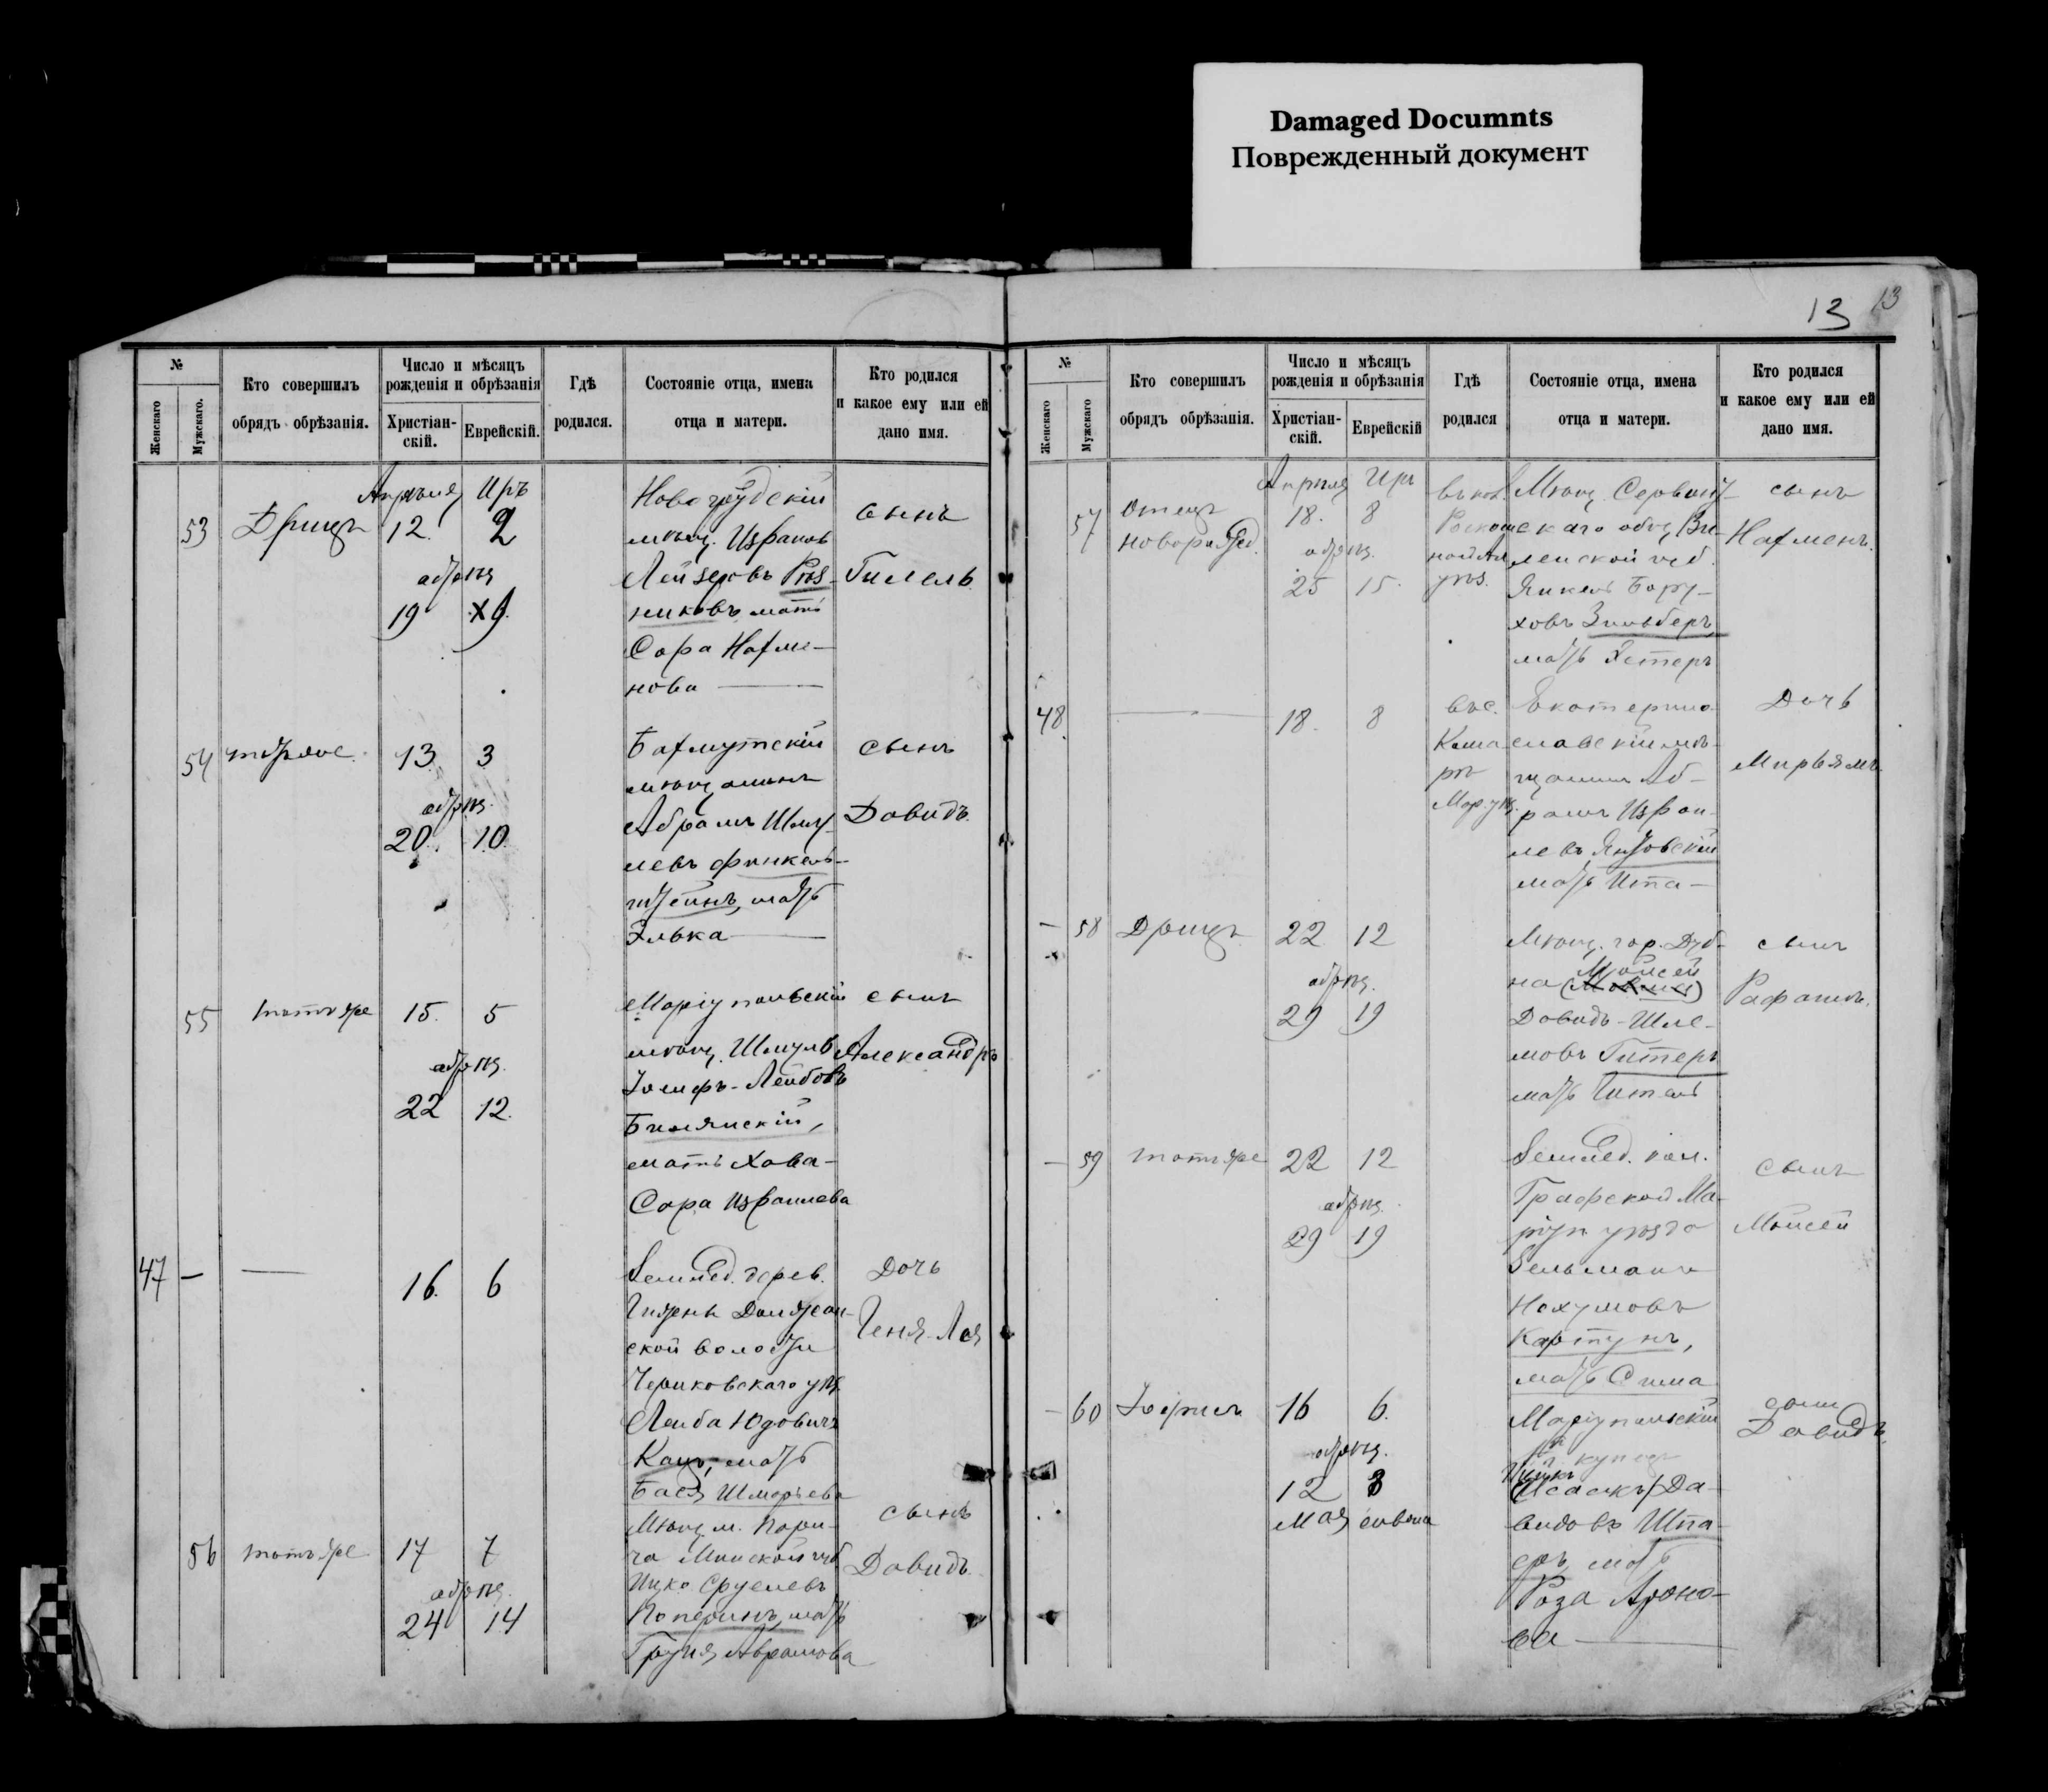 Damaged Documnts
Поврежденный документ
13 13
№
Женскаго
Мужскаго.
Кто совершилъ
обрядъ обрѣзанія.
Число и мѣсяцъ
рожденія и обрѣзанія
Христіан-
скій.
Еврейскій.
Гдѣ
родился.
Состояніе отца, имена
отца и матери.
Кто родился
и какое ему или ей
дано имя.
Апрѣля Иръ
53 Дрицъ 12. 2
обрѣз.
19
Новогрудскій
мѣщ. Израиль
Лейзеровъ Рѣз-
никовъ мать
Сора Нахме-
нова
сынъ
Гилель
54 тотъже 13. 3
обрѣз.
20. 10.
Бахмутскій
мѣщанинъ
Абрамъ Шму-
левъ Финкель-
штейнъ, мать
Элька
сынъ
Давидъ.
55 тотъже 15. 5
обрѣз.
22 12.
Маріупольскій
мѣщ. Шмуль
Іосифъ-Лейбовъ
мать Хава-
Сора Израилева
сынъ
Александръ
47 16. 6
дерев.
ской волости
Чериковскаго уѣз.
Лейба Юдовичъ
Кацъ, мать
Бася Шмерьева
Дочь
Геня-Лея
56 тотъже 17 7
обрѣз.
24 14
Мѣщ. м. Пари-
ча Минской губ
Ицко Сруелевъ
мать
Груня Абрамова
сынъ
Давидъ.
№
Женскаго
Мужскаго
Кто совершилъ
обрядъ обрѣзанія.
Число и мѣсяцъ
рожденія и обрѣзанія
Христіан-
скій.
Еврейскій
Гдѣ
родился
Состояніе отца, имена
отца и матери.
Кто родился
и какое ему или ей
дано имя.
Апрѣля Иръ
57 Отецъ
новорожд.
18. 8
обрѣз.
25 15.
уѣз.
Мѣщ.
скаго общ. Ви-
ленской губ.
Янкель Бору-
ховъ Зильберъ,
мать Эстеръ
сынъ
Нахменъ.
48 18. 8
въ с.
Мар. уѣз.
Екатерино-
славскій мѣ-
щанинъ Аб-
рамъ Израи-
левъ
мать Ита
Дочь
Мирьямъ.
58 Дрицъ 22 12
обрѣз.
29 19
Мѣщ. гор. Дуб-
на Мойсей
Довидъ-Шле-
мовъ Гитеръ
мать Гитель
сынъ
Рафаилъ.
59 тотъже 22 12
обрѣз.
29 19
кол.
Графской Ма-
ріуп уѣзда
Зельманъ
Нохумовъ
Картунъ,
мать Сима
сынъ
Мойсей
60 16 6.
обрѣз.
12 8
Мая сивона
Маріупольскій
купецъ
Исаакъ Да-
видовъ Шпа-
еръ, мать
Роза Ароно-
ва
сынъ
Давидъ.